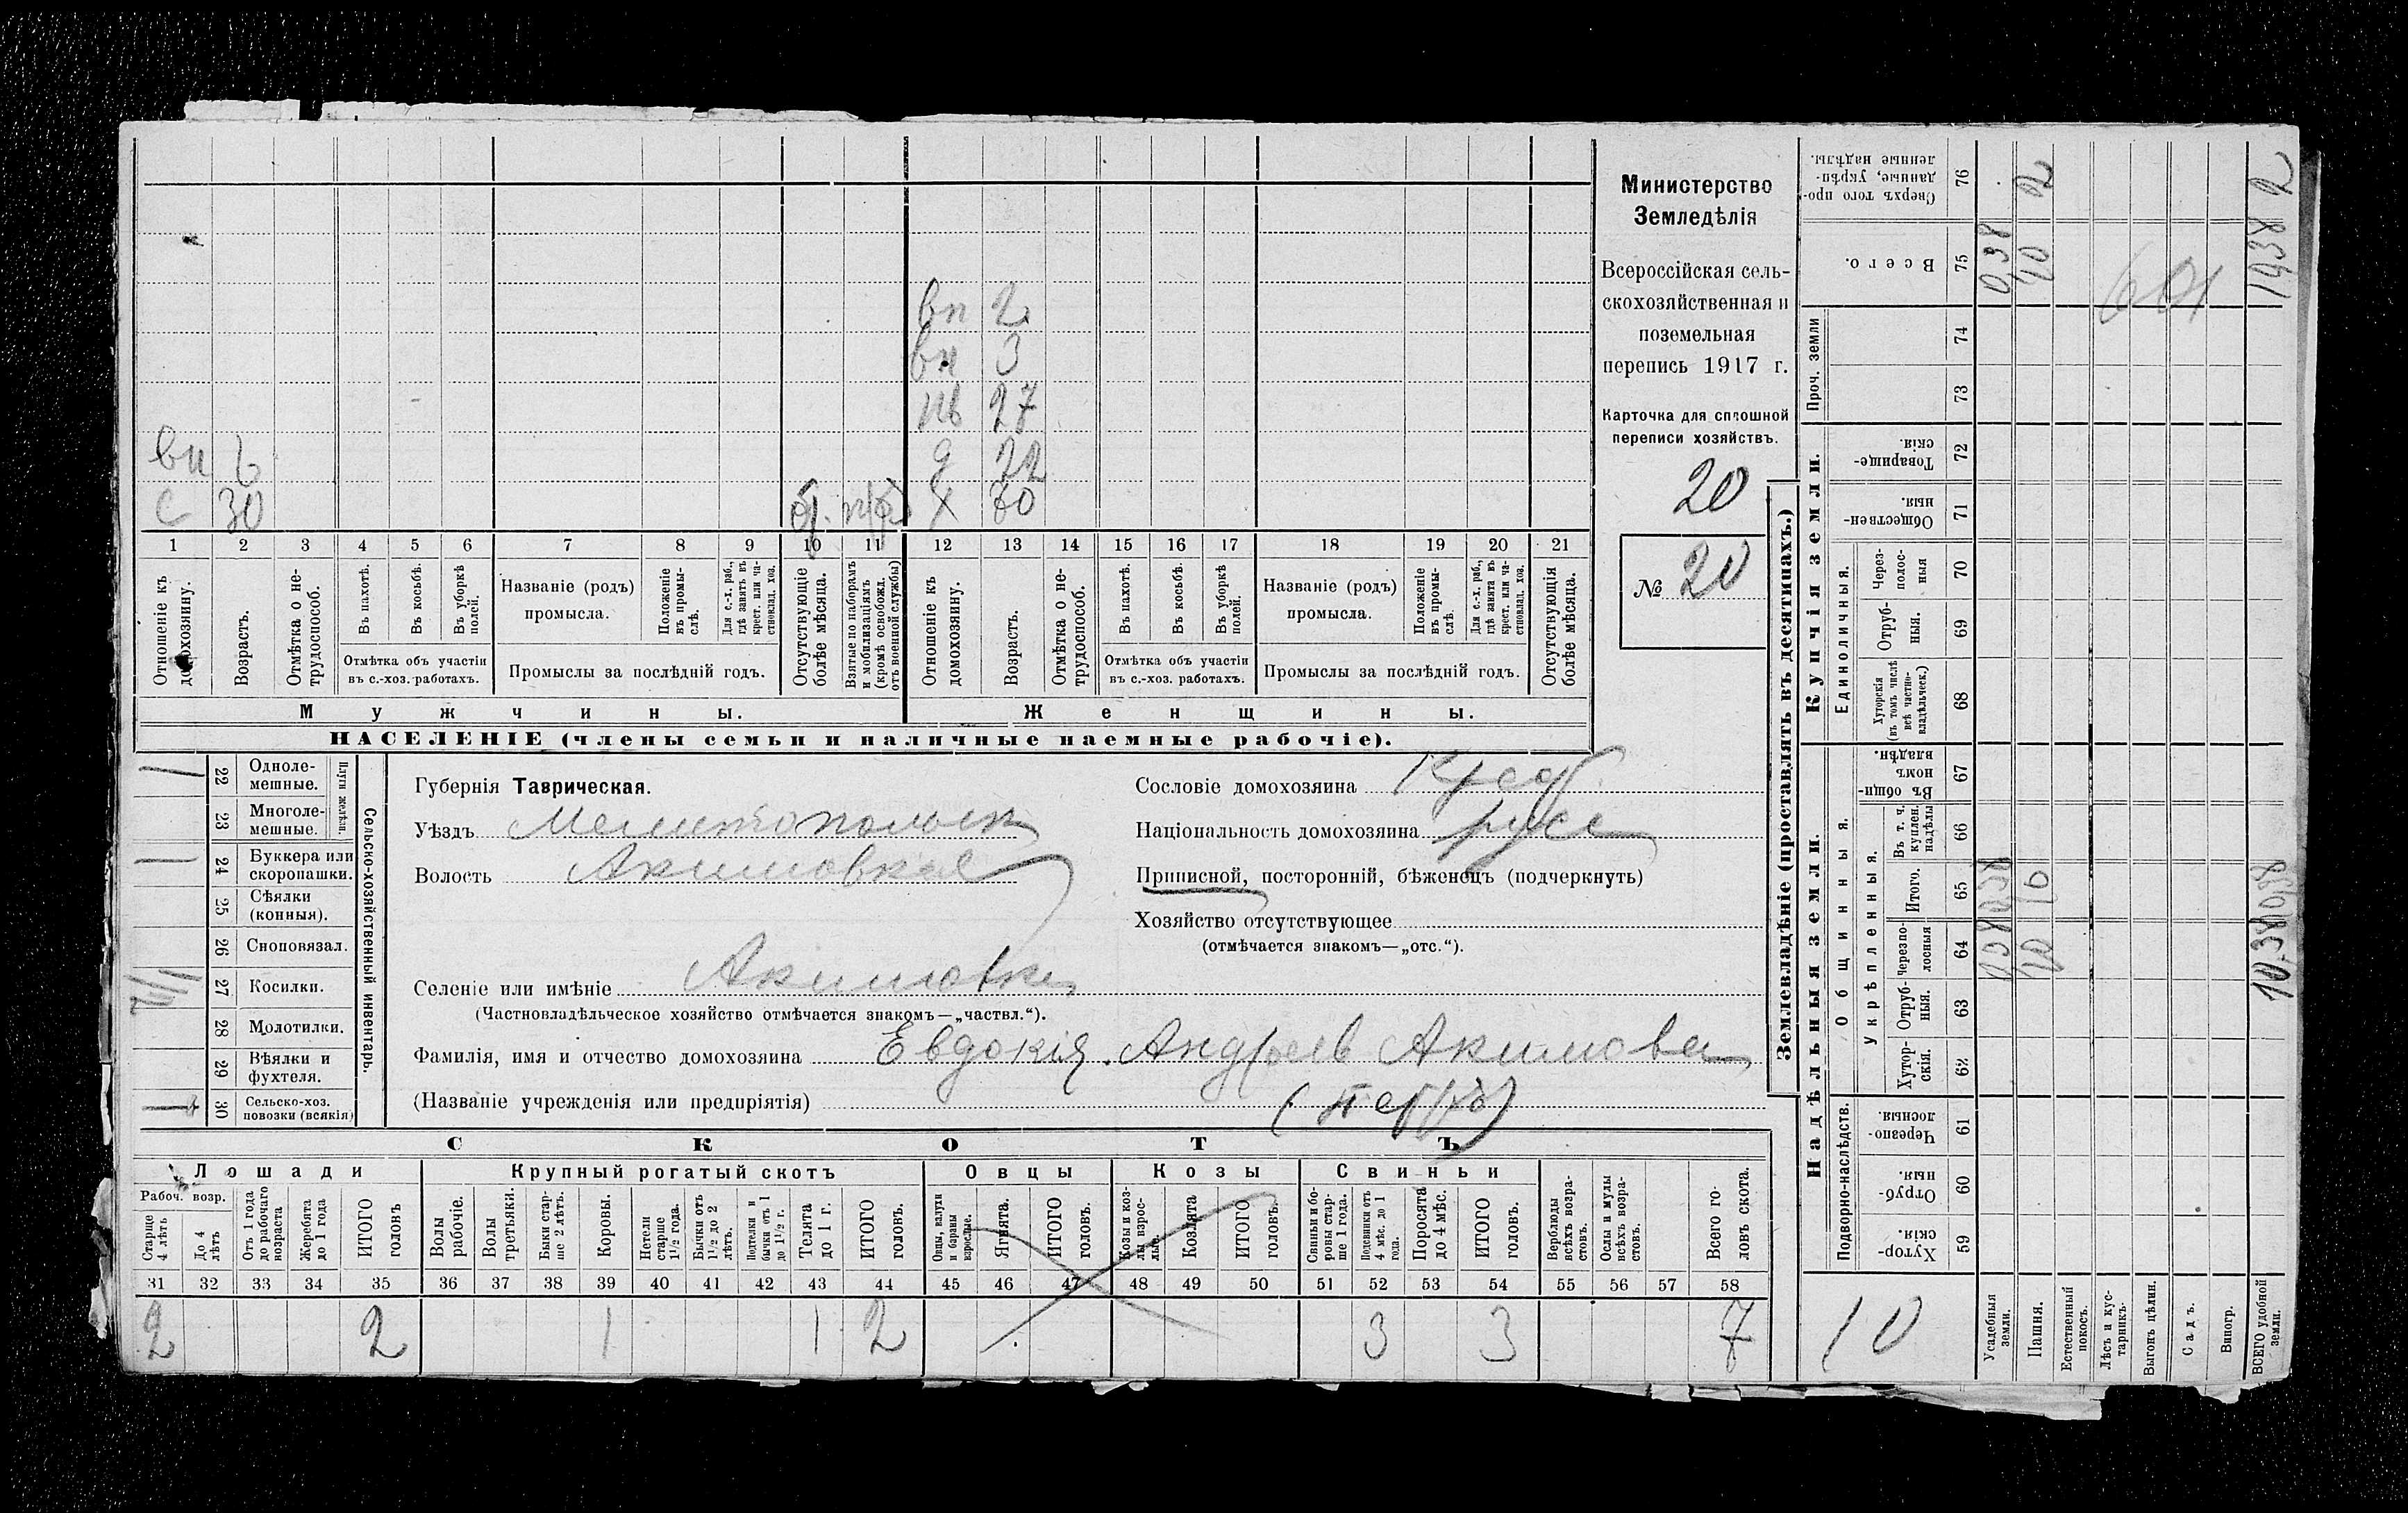 Министерство
Земледѣлія
Всероссійская сель-
скохозяйственная и
поземельная
перепись 1917 г.
Карточка для сплошной
переписи хозяйствъ.
20
№ 20
вп 2
вп 3
нв 27
вп 6 д 22
с 30 х 60
1 2 3 4 5 6 7 8 9 10 11 12 13 14 15 16 17 18 19 20 21
Отношеніе къ домохозяину.
Возрастъ.
Отмѣтка о не-трудоспособ.
Въ пахотѣ.
Въ косьбѣ.
Въ уборкѣ полей.
Отмѣтка объ участіи въ с.-хоз. работахъ.
Названіе (родъ) промысла.
Положеніе въ промы-слѣ.
Для с.-х. раб., гдѣ занятъ въ крест. или ча-стновлад. хоз.
Промыслы за послѣдній годъ.
Отсутствующіе болѣе мѣсяца.
Взятые по наборамъ и мобилизаціямъ (кромѣ освобожд. отъ военной службы)
Отношеніе къ домохозяину.
Возрастъ.
Отмѣтка о не-трудоспособ.
Въ пахотѣ.
Въ косьбѣ.
Въ уборкѣ полей.
Отмѣтка объ участіи въ с.-хоз. работахъ.
Названіе (родъ) промысла.
Положеніе въ промы-слѣ.
Для с.-х. раб., гдѣ занята въ крест. или ча-стновлад. хоз.
Промыслы за послѣдній годъ.
Отсутствующія болѣе мѣсяца.
Мужчины. Женщины.
НАСЕЛЕНІЕ (члены семьи и наличные наемные рабочіе).
Сельско-хозяйственный инвентарь.
Плуги желѣзн.
22 Однолемешные.
23 Многолемешные.
24 Буккера или скоропашки.
25 Сѣялки (конныя).
26 Сноповязал.
27 Косилки.
28 Молотилки.
29 Вѣялки и фухтеля.
30 Сельско-хоз. повозки (всякія)
Губернія Таврическая.
Уѣздъ Мелитопольск
Волость Акимовская
Селеніе или имѣніе Акимовка
(Частновладѣльческое хозяйство отмѣчается знакомъ—„частвл.“).
Сословіе домохозяина
Національность домохозяина русс
Приписной, посторонній, бѣженецъ (подчеркнуть)
Хозяйство отсутствующее
(отмѣчается знакомъ—„отс.“).
Фамилія, имя и отчество домохозяина Евдокія Андреев Акимова
(Названіе учрежденія или предпріятія)
СКОТЪ
Лошади Крупный рогатый скотъ Овцы Козы Свиньи
Рабоч. возр.
Старше 4 лѣтъ
До 4 лѣтъ
Отъ 1 года до рабочаго возраста
Жеребята до 1 года
ИТОГО головъ
Волы рабочіе.
Волы третьяки.
Быки стар-ше 2 лѣтъ.
Коровы.
Нетели старше 1 1/2 года.
Бычки отъ 1 1/2 до 2 лѣтъ.
Подтелки и бычки отъ 1 до 1 1/2 г.
Телята до 1 г.
ИТОГО головъ.
Овцы, валухи и бараны взрослые.
Ягнята.
ИТОГО головъ.
Козы и коз-лы взрос-лые
Козлята
ИТОГО головъ.
Свиньи и бо-ровы стар-ше 1 года.
Подсвинки отъ 4 мѣс. до 1 года.
Поросята до 4 мѣс.
ИТОГО головъ.
Верблюды всѣхъ возра-стовъ.
Ослы и мулы всѣхъ возра-стовъ.
Всего го-ловъ скота.
31 32 33 34 35 36 37 38 39 40 41 42 43 44 45 46 47 48 49 50 51 52 53 54 55 56 57 58
2 2 1 1 2 3 3 7
Землевладѣніе (проставлять въ десятинахъ.)
Надѣльныя земли.
Подворно-наслѣдств.
Хутор-скія. 59
Отруб-ныя. 60
Черезпо-лосныя. 61
Общинныя.
Укрѣпленныя.
Хутор-скія. 62
Отруб-ныя. 63
Черезпо-лосныя 64
Итого. 65
Въ т. ч. куплен. надѣлы 66
Въ общин-номъ владѣн. 67
Купчія земли.
Единоличныя.
Хуторскія (въ томъ числѣ всѣ частно-владѣльческ.) 68
Отруб-ныя. 69
Через-полос-ныя 70
Обществен-ныя. 71
Товарище-скія. 72
Проч. земли
73 74
Всего. 75
Сверхъ того про-данные, укрѣп-ленные надѣлы. 76
Усадебныя земли.
Пашня.
Естественный покосъ.
Лѣсъ и кус-тарникъ.
Выгонъ цѣлин.
Садъ.
Виногр.
ВСЕГО удобной земли.
10
0,38
10
10,38
2
2